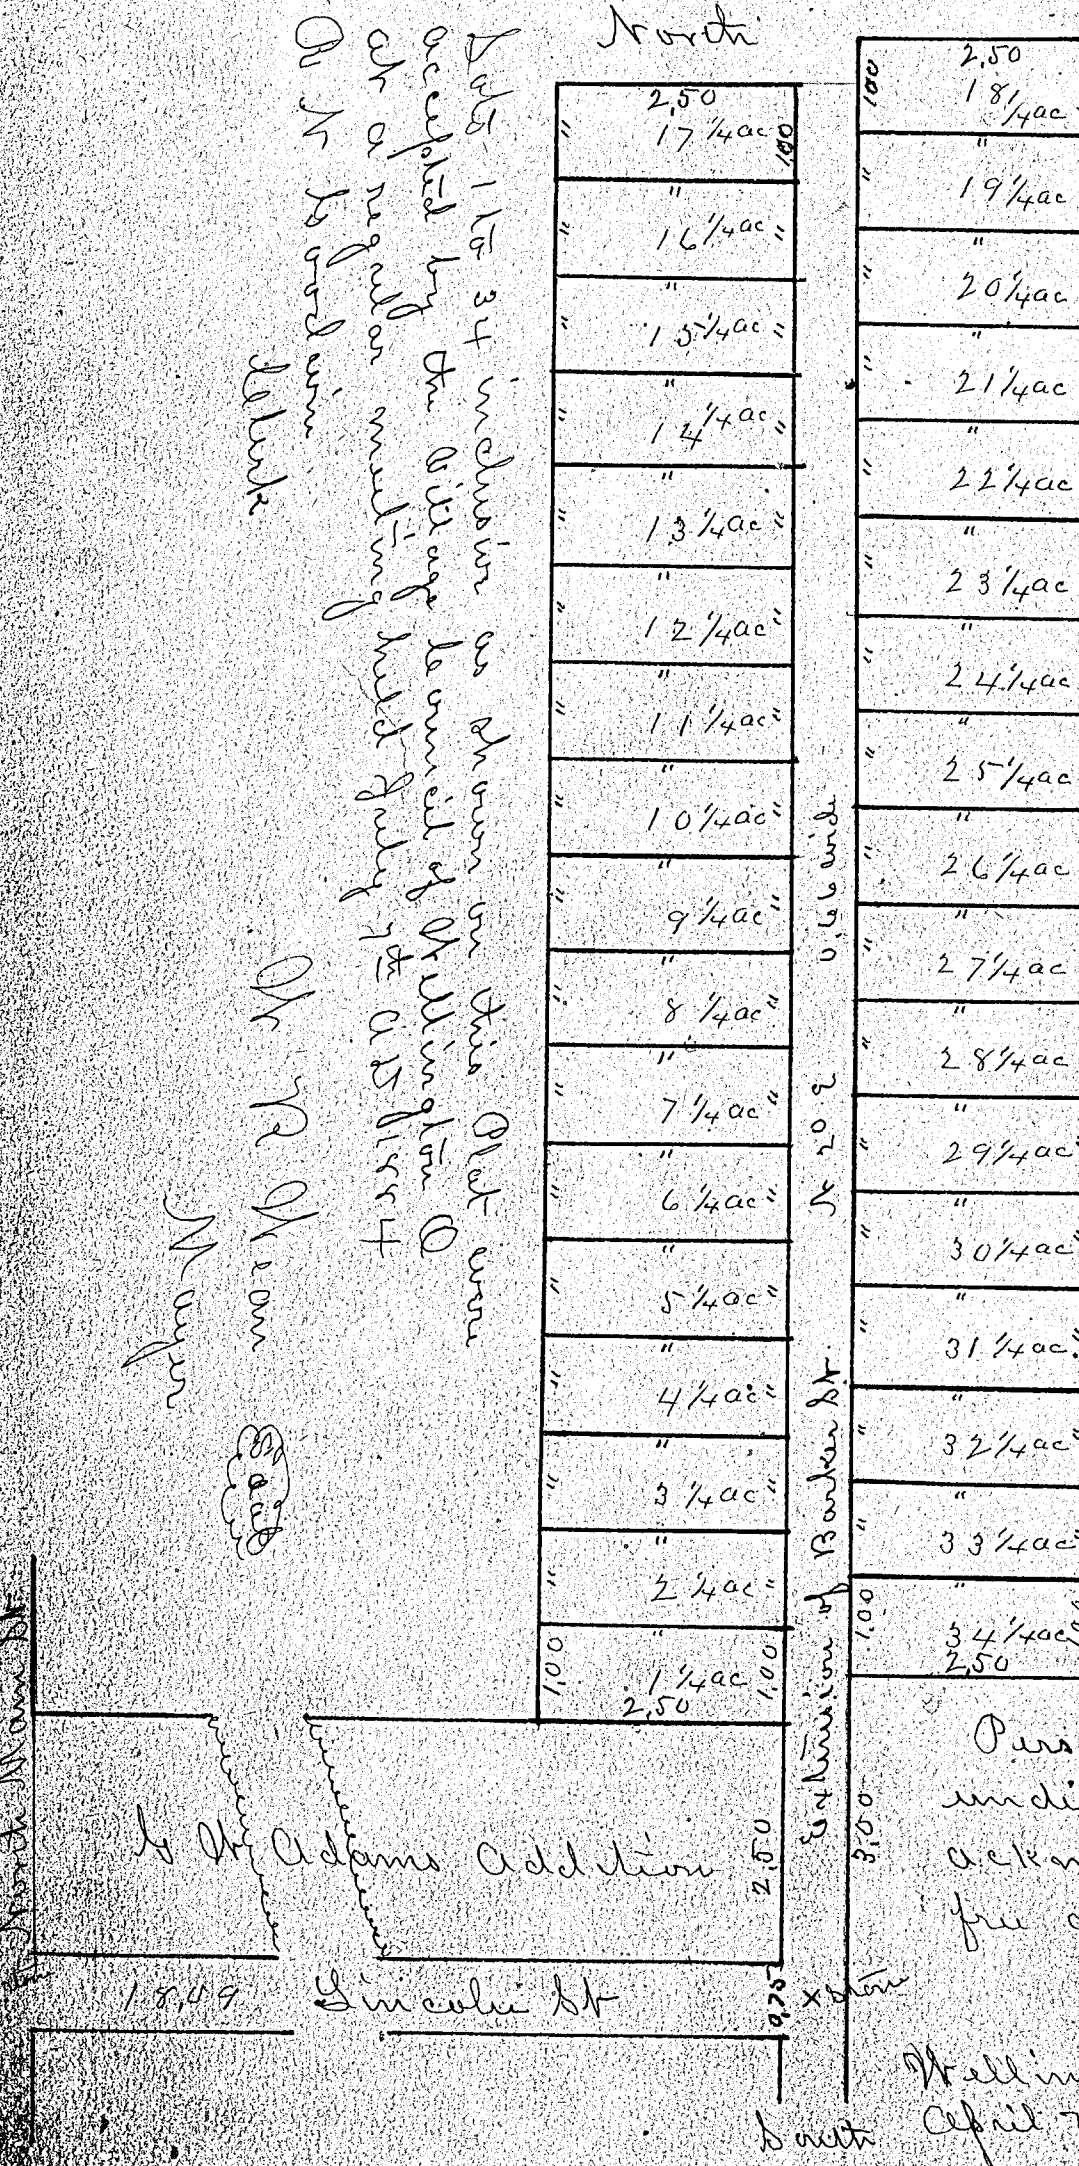 North
Lots 1 to 34 inclusive as shown on this Plat were
accepted by the Village Council of Wellington O
at a regular meeting held July 7th AD 1884
R N Goodwin
Clerk
W R Wean
Mayor
Seal
2,50
17 1/4ac 1,00
"
" 16 1/4ac "
"
" 15 1/4ac "
"
" 14 1/4ac "
"
" 13 1/4ac "
"
" 12 1/4ac "
"
" 11 1/4ac "
"
" 10 1/4ac "
"
" 9 1/4ac "
"
" 8 1/4ac "
"
" 7 1/4ac "
"
" 6 1/4ac "
"
" 5 1/4ac "
"
" 4 1/4ac "
"
" 3 1/4ac "
"
" 2 1/4ac "
"
1,00 1 1/4ac 1,00
2,50
Extension of Barker St. N 2° E 0,66 wide
2,50
100 18 1/4ac
"
" 19 1/4ac
"
" 20 1/4ac
"
" 21 1/4ac
"
" 22 1/4ac
"
" 23 1/4ac
"
" 24 1/4ac
"
" 25 1/4ac
"
" 26 1/4ac
"
" 27 1/4ac
"
" 28 1/4ac
"
" 29 1/4ac
"
" 30 1/4ac
"
" 31 1/4ac "
"
" 32 1/4ac "
"
" 33 1/4ac "
"
1,00 34 1/4ac
2,50
3,00
Pers
undi
ackn
free a
North Main St
G W Adams Addition 2,50
18,09 Lincoln St 0,75
x Stone
South
Wellin
April 7